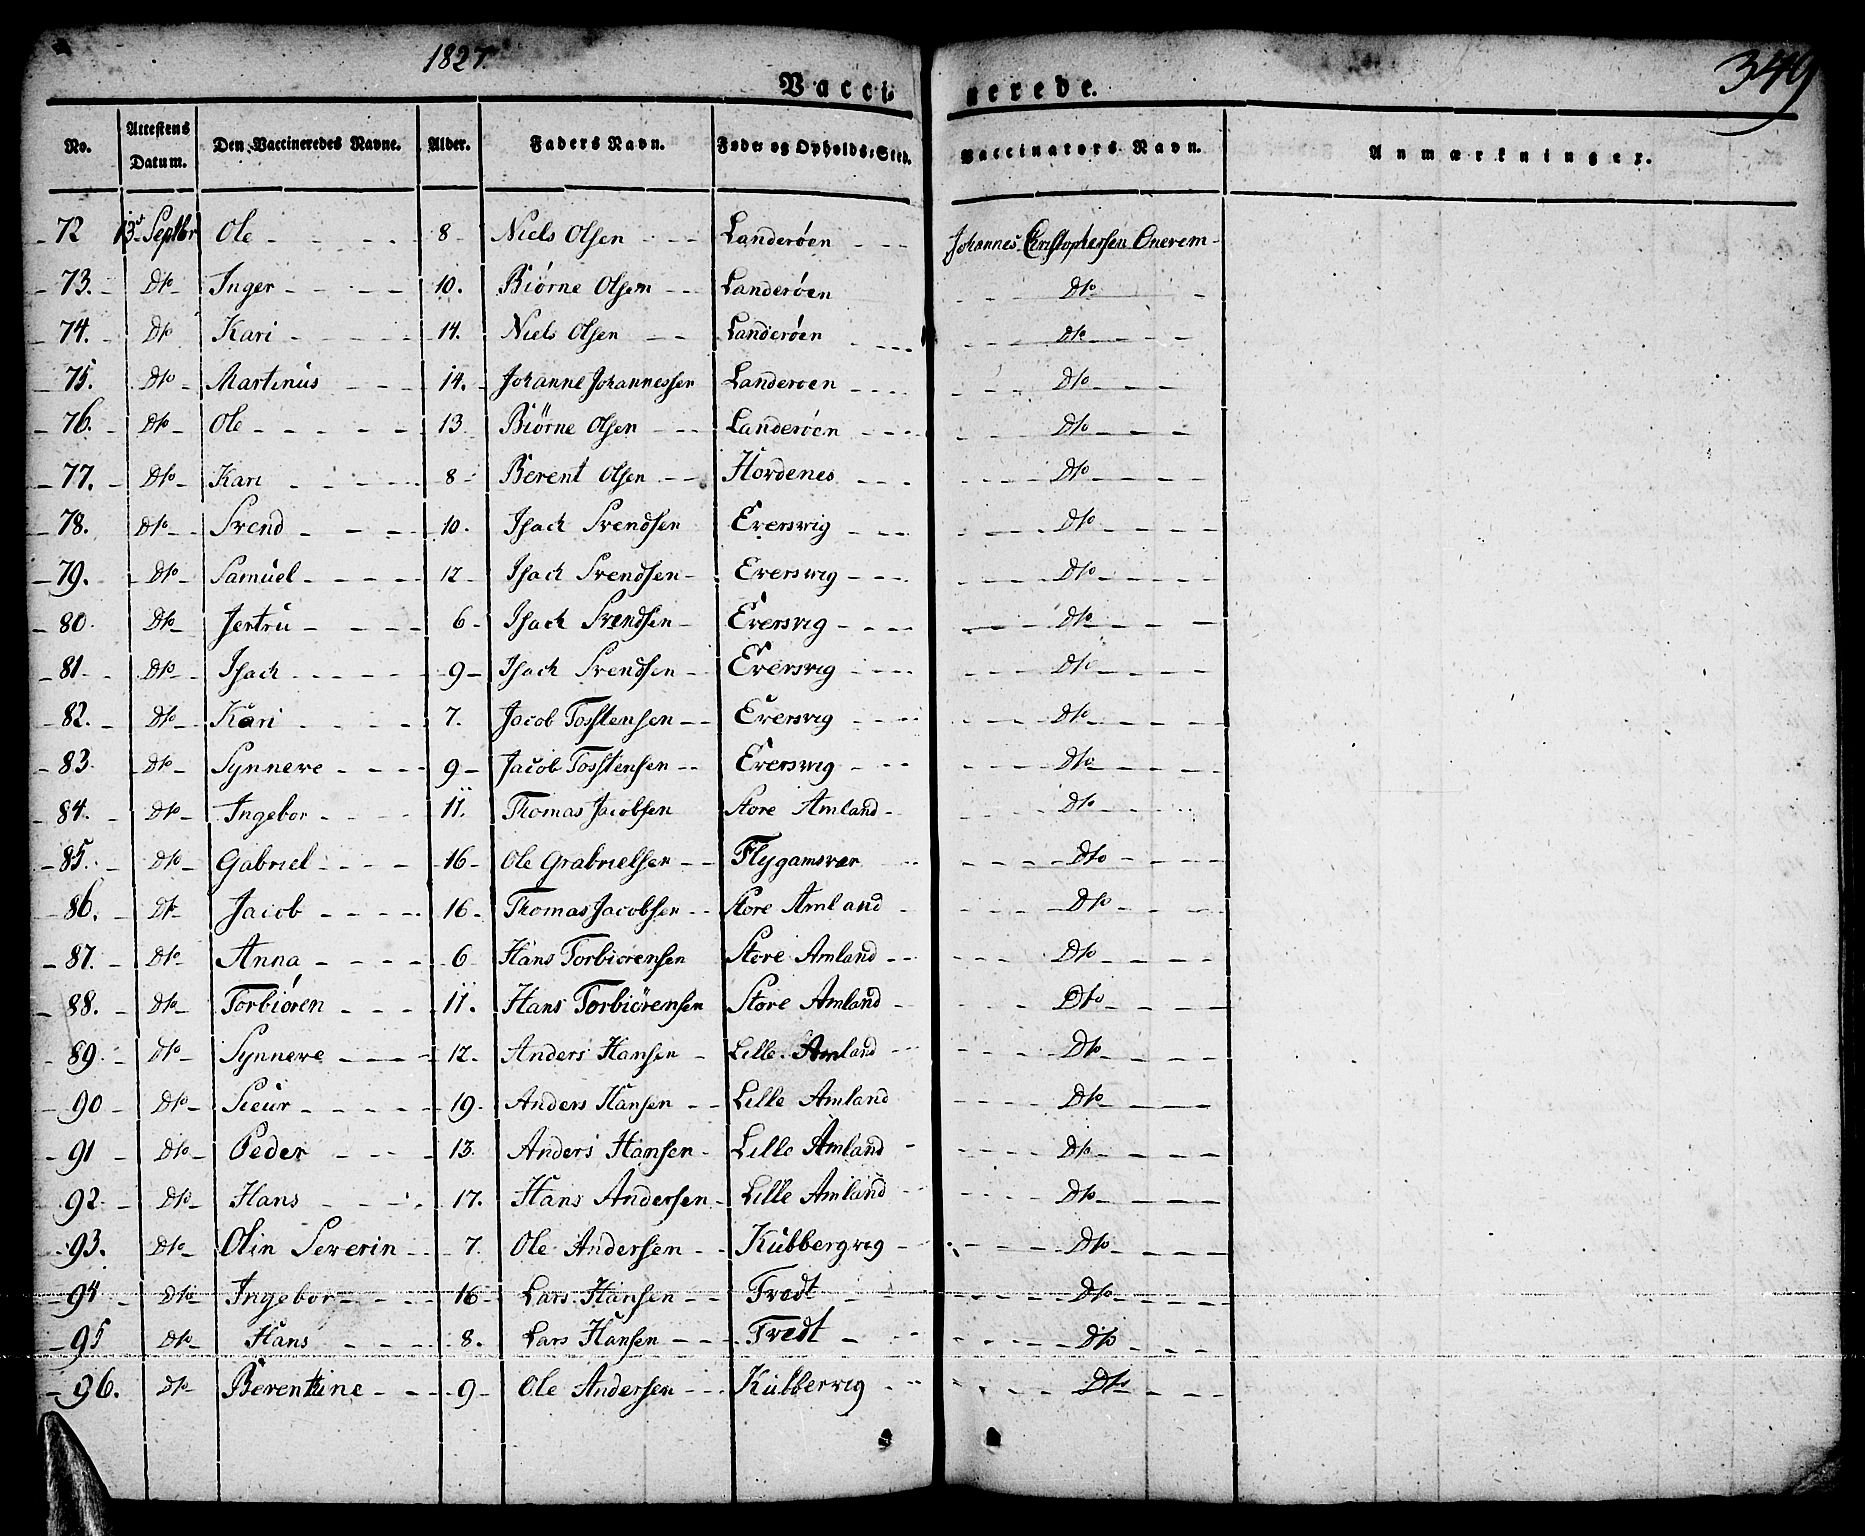 1827.
349
Vaccinerede.
No. Attestens Datum. Den Vaccineredes Navne. Alder. Faders Navn. Føde- og Opholds-Sted. Vaccinators Navn. Anmærkninger.
72 13d Septbr Ole 8 Niels Olsen Landerøen Johannes Christophersen Onerem
73. Dto Inger 10. Biørne Olsen Landerøen Dto
74. Dto Kari 14. Niels Olsen Landerøen Dto
75. Dto Martinus 14. Johanne Johannessen Landerøen Dto
76. Dto Ole 13 Biørne Olsen Landerøen Dto
77. Dto Kari 8 Berent Olsen Hordenes Dto
78. Dto Svend 10. Isach Svendsen Eversvig Dto
79. Dto Samuel 12 Isach Svendsen Eversvig Dto
80 Dto Jertru 6 Isach Svendsen Eversvig Dto
81 Dto Isach 9 Isach Svendsen Eversvig Dto
82. Dto Kari 7. Jacob Tosstensen Eversvig Dto
83 Dto Synneve 9 Jacob Tosstensen Eversvig Dto
84. Dto Ingebor 11. Thomas Jacobsen Store Amland Dto
85. Dto Gabriel 16 Ole Grabrielsen Flygansvær Dto
86. Dto Jacob 16 Thomas Jacobsen Store Amland Dto
87. Dto Anna 6 Hans Torbiørensen Store Amland Dto
88. Dto Torbiøren 11. Hans Torbiørensen Store Amland Dto
89 Dto Synneve 12. Anders Hansen Lille Amland Dto
90 Dto Sieur 19. Anders Hansen Lille Amland Dto
91 Dto Peder 13. Anders Hansen Lille Amland Dto
92 Dto Hans 17. Hans Andersen Lille Amland Dto
93. Dto Olin Severin 7. Ole Andersen Kubbergvig Dto
94 Dto Ingebor 16 Lars Hansen Tvedt Dto
95 Dto Hans 8. Lars Hansen Tvedt Dto
96. Dto Berenthine 9 Ole Andersen Kubbervig Dto